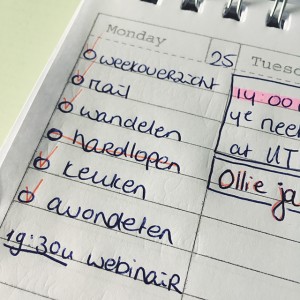 Monday
25
Tuesd
weekoverzicht
mail
wandelen
hardlopen
keuken
avondeten
19:30u webinaiR
14:00
4e nee
at UT
Ollie ja